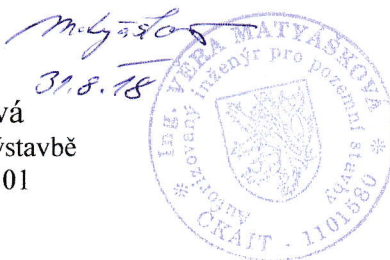 31.8.18
vá
ýstavbě
01
Ing. VĚRA MATYÁSKOVÁ
Autorizovaný inženýr pro pozemní stavby
ČKAIT - 1101580